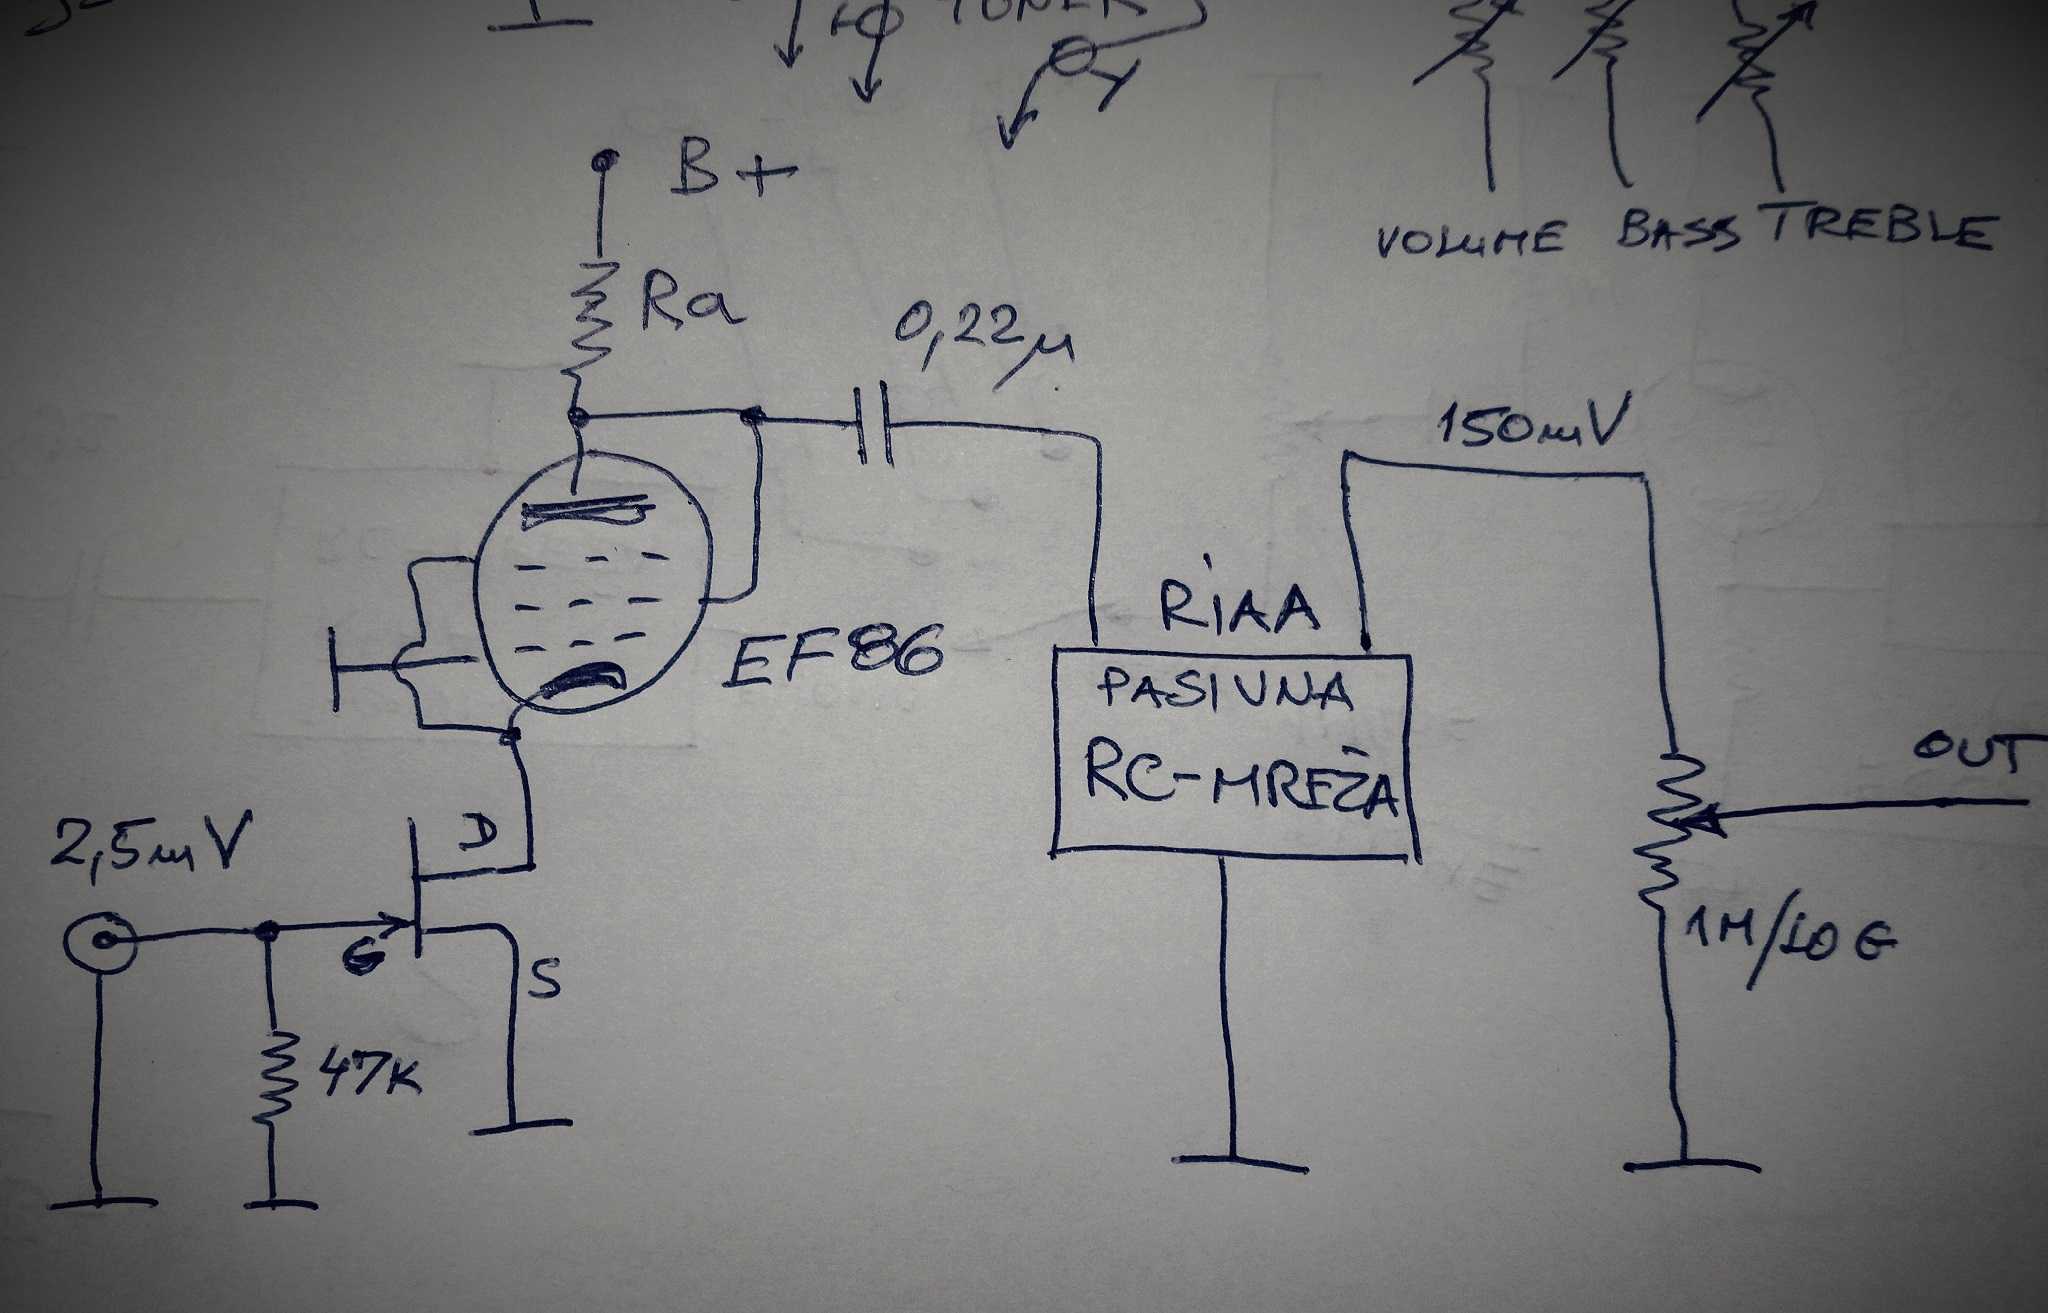 TUNER
B+
Ra
0,22µ
VOLUME BASS TREBLE
150mV
EF86
RiAA
PASIVNA
RC-MREŽA
OUT
2,5mV
D
G
S
1M/10G
47K